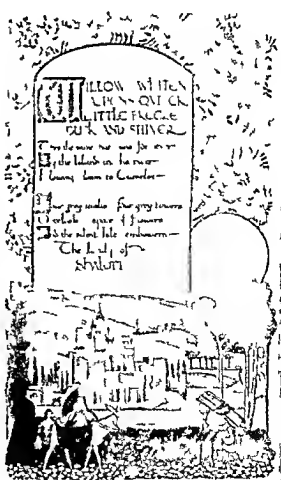 WILLOW WHITEN
QUIVER
LITTLE
DUSK AND SHIVER
the wave for ever
By the Island in the river
Flowing down to Camelot—
Four grey walls four grey towers
Overlook a space of flowers
And the silent isle embowers—
The Lady of
Shalott